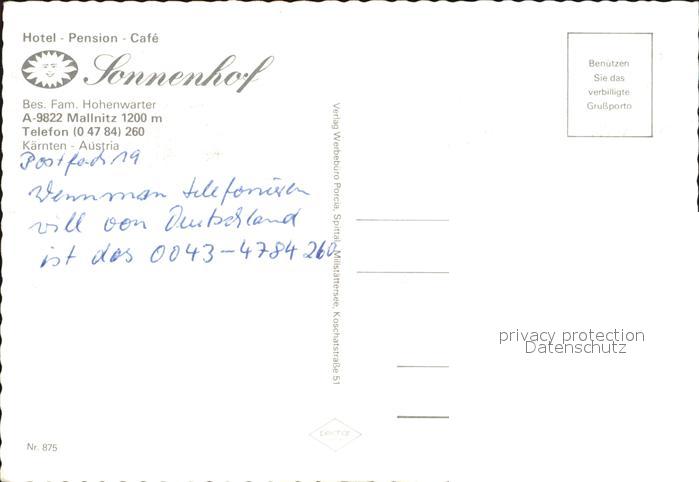 Hotel - Pension - Café
Sonnenhof
Bes. Fam. Hohenwarter
A-9822 Mallnitz 1200 m
Telefon (0 47 84) 260
Kärnten - Austria
Postfach 19
Wenn man telefonieren
will von Deutschland
ist das 0043-4784 260
Nr. 875
Verlag Werbebüro Porcia, Spittal - Millstättersee, Koschatstraße 51
Benützen
Sie das
verbilligte
Grußporto
privacy protection
Datenschutz